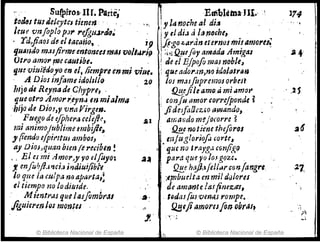 Suspiros. III. Parte,
todas tus deleytes tienen
leue vn soplo por resguardo:
Ydsiaos de el tacaño, 19
quando mas firme entonces mas voltario.
Otro amor me cautibe.
que viuiedo yo en el, siempre en mi viue.
A Dios infame idolillo 20
hijo de Reyna de Chypre,
que otro Amor reyna en mi alma
hijo de Dios, y vna Virgen.
Fuego de esphera celeste, 21
mi animo sublime embiste,
y siendo espiritus ambos,
ay Dios, quan bien se reciben!
El es mi Amor, y yo el suyo; 22
y en substancia indiuisible
lo que la culpa no aparta,
el tiempo no lo diuide.
Mientras que las sombras
siguieren los montes
Emblema III. 174
y la noche al dia
y el dia á la noche,
seran eternos mis amores.
Que soy amada Amigas 24
de el Esposo mas noble,
que adoran, no idolatran
los mas supremos orbes
Que sile amo á mi amor 25
con su amor corresponde
si desfallezco amando,
amando me socorre
Que no tiene thesoros 26
en su glorioso corte,
que no trayga consigo
para que yo los goze.
Que hasta sellar con sangre 27
embuelta en mil dolores
de amante las finezas,
todas sus venas rompe.
Que si amores son obras,
© Biblioteca Nacional de España
© Biblioteca Nacional de España